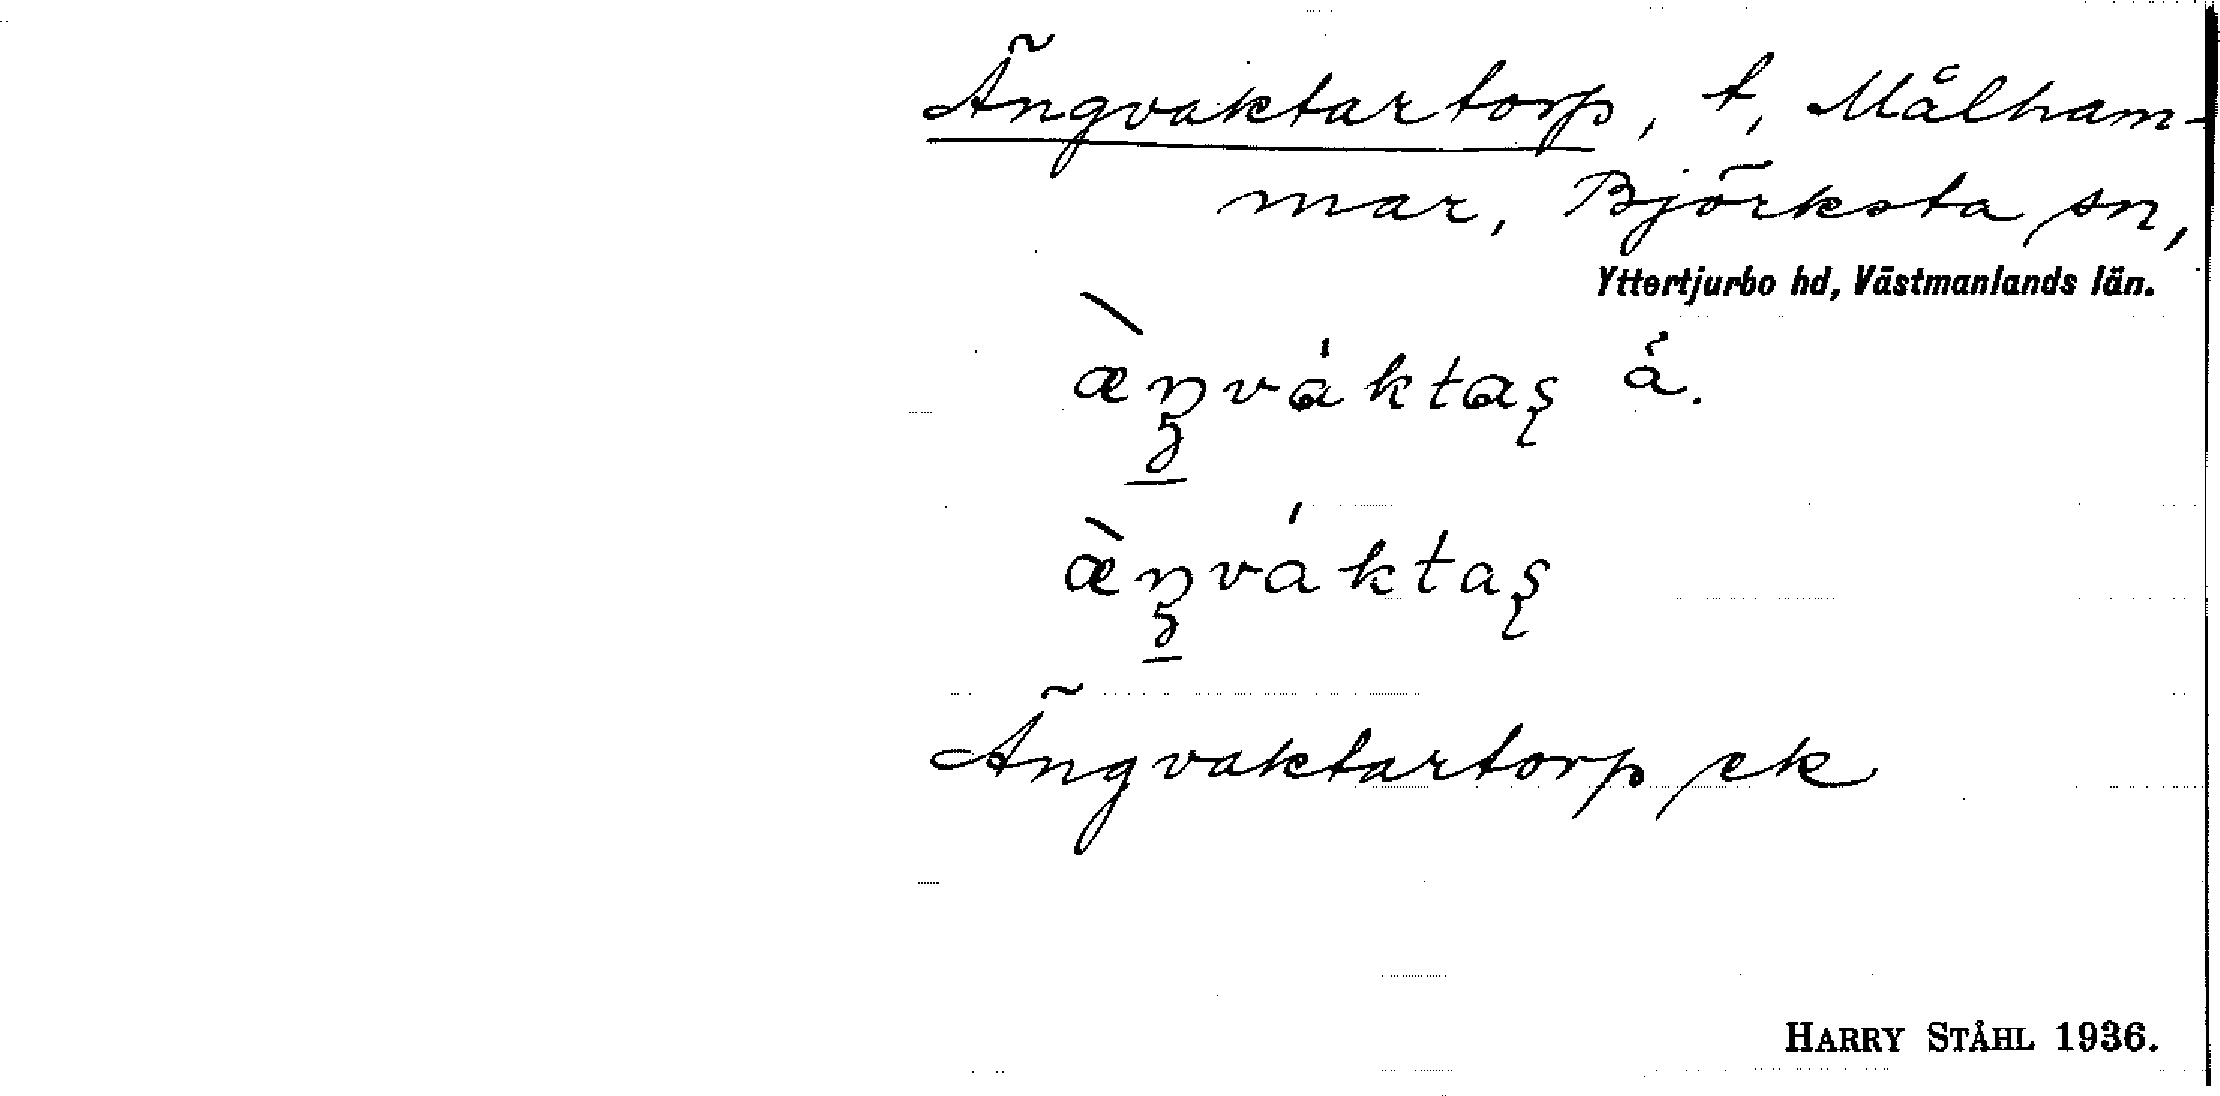 Ängvaktartorp, t, Målham-
mar, Björksta sn,
Yttertjurbo hd, Västmanlands län.
æ̀ŋváktaʂ å.
æ̀ŋváktaʂ
Ängvaktartorp ek
HARRY STÅHL 1936.